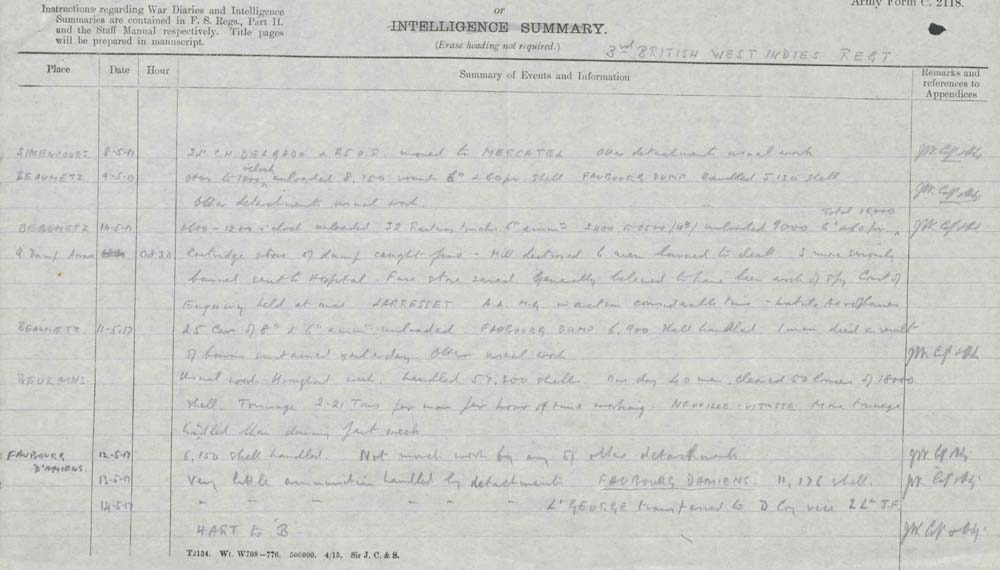 Instructions regarding War Diaries and Intelligence
Summaries are contained in F. S. Regs., Part II.
and the Staff Manual respectively. Title pages
will be prepared in manuscript.
or
INTELLIGENCE SUMMARY.
(Erase heading not required.)
Army Form C. 2118.
3rd BRITISH WEST INDIES REGT
Place Date Hour Summary of Events and Information Remarks and references to Appendices
SIMENCOURT 8-5-17 C.H. DELGADO & 25 O.R. moved to MERCATEL Other detachments usual work
BEAUMETZ 9-5-17 to o'clock unloaded 8,750 rounds 6" & 60 pr. shell FAUBOURG DUMP handled 5130 shell.
Other detachments usual work.
BEAUMETZ 10-5-17 0600 - 1200 o'clock unloaded 32 Railway trucks 6" ammn 2400 to 0500 unloaded 9000 6" & 60 pr Total 18,000
0830 Cartridge store of dump caught fire - Hill destroyed 6 men burned to death 3 more seriously
burned sent to Hospital. Fuze store saved Generally believed to have been work of spy Court of
Enquiry held at once LARRESSET A.A. M.G. in action considerable time - hostile Aeroplanes
BEAUMETZ 11-5-17 25 Cars of 8" & 6" ammn unloaded FAUBOURG DUMP 6,900 shell handled 1 man died as result
of burns sustained yesterday Other usual work
BEURAINS Usual work throughout week. handled 57,800 shell. One day 40 men cleared 50 lorries of 18000
shell. Tonnage 2.21 Tons per man per hour of time working. NEUVILLE-VITASSE More tonnage
handled than during past week
FAUBOURG D'AMIENS. 12-5-17 6,150 shell handled. Not much work by any of other detachments
13-5-17 Very little ammunition handled by detachments FAUBOURG DAMIENS. 11,176 shell.
14-5-17 " " " " " Lt GEORGE transferred to D Coy vice 2 Lt J.F.
HART to 'B'
T2134. Wt. W708-776. 500000. 4/15. Sir J. C. & S.